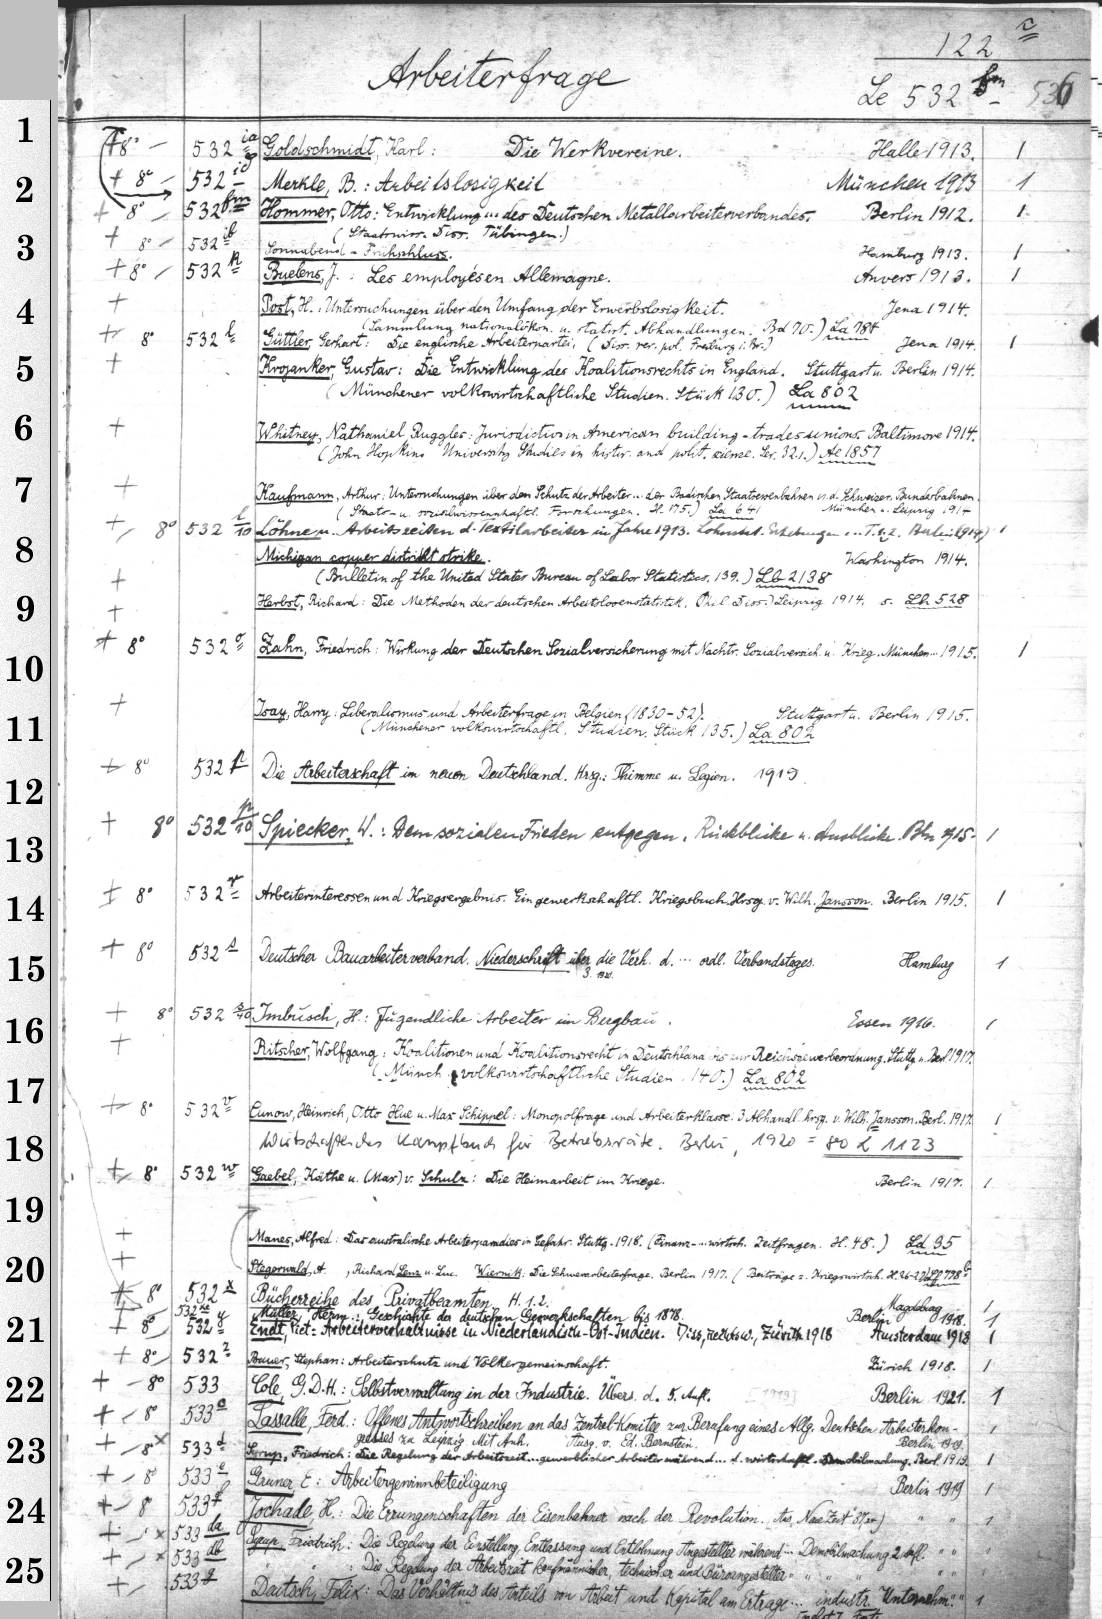 122
Arbeiterfrage
Le 532 fm - 536
1
+ 8° - 532 ia Goldschmidt, Karl: Die Werkvereine. Halle 1913. 1
2
+ 8° - 532 id Merkle, B.: Arbeitslosigkeit München 1913 1
+ 8° - 532 fm Hommer, Otto: Entwicklung ... des Deutschen Metallarbeiterverbandes. Berlin 1912. 1
(Staatswiss. Diss. Tübingen.)
3
+ 8° - 532 Sonnabend-Frühschluss. Hamburg 1913. 1
+ 8° - 532 k Buelens, J.: Les employés en Allemagne. Anvers 1913. 1
4
+ Post, H.: Untersuchungen über den Umfang der Erwerbslosigkeit. Jena 1914.
(Sammlung nationalökon. u. statist. Abhandlungen. Bd 70.) La 784
+ 8° 532 l Güttler, Gerhart: Die englische Arbeiterpartei, (Diss. rer. pol. Freiburg i. Br.) Jena 1914. 1
5
+ Krojanker, Gustav: Die Entwicklung des Koalitionsrechts in England. Stuttgart u. Berlin 1914.
(Münchener volkswirtschaftliche Studien. Stück 130.) La 802
6
+ Whitney, Nathaniel Ruggles: Jurisdiction in American building-trades unions. Baltimore 1914.
(John Hopkins University Studies in histor. and polit. science. Ser. 32.1.) Ae 1857
7
+ Kaufmann, Arthur: Untersuchungen über den Schutz der Arbeiter ... der Badischen Staatseisenbahnen u. d. Schweizer. Bundesbahnen.
(Staats- u. sozialwissenschaftl. Forschungen. H. 175.) La 641 München u. Leipzig 1914
+ 8° 532 l/10 Löhne u. Arbeitszeiten d. Textilarbeiter im Jahre 1913. Lohnstat. Erhebungen ... Berlin (1914) 1
8
Michigan copper district strike. Washington 1914.
+ (Bulletin of the United States Bureau of Labor Statistics. 139.) Lb 2138
9
+ Herbst, Richard: Die Methoden der deutschen Arbeitslosenstatistik. (Phil. Diss.) Leipzig 1914. s. Lh 528
+ 8° 532 o Zahn, Friedrich: Wirkung der Deutschen Sozialversicherung mit Nachtr. Sozialversich. u. Krieg. München ... 1915. 1
10
+ Isay, Harry: Liberalismus und Arbeiterfrage in Belgien (1830-52). Stuttgart u. Berlin 1915.
11
(Münchener volkswirtschaftl. Studien. Stück 135.) La 802
+ 8° 532 p Die Arbeiterschaft im neuen Deutschland. Hrsg.: Thimme u. Legien. 1915.
12
+ 8° 532 p/10 Spiecker, W.: Dem sozialen Frieden entgegen. Rückblicke u. Ausblicke. Bln 1915. 1
13
+ 8° 532 r Arbeiterinteressen und Kriegsergebnis. Ein gewerkschaftl. Kriegsbuch. Hrsg. v. Wilh. Jansson. Berlin 1915. 1
14
+ 8° 532 s Deutscher Bauarbeiterverband. Niederschrift über die Verh. d. ... ordl. Verbandstages. Hamburg 1
15
3.
+ 8° 532 s/10 Imbusch, H.: Jugendliche Arbeiter im Bergbau. Essen 1916. 1
16
+ Ritscher, Wolfgang: Koalitionen und Koalitionsrecht in Deutschland bis zur Reichsgewerbeordnung. Stuttg. u. Berl 1917.
(Münch. volkswirtschaftliche Studien. 140.) La 802
17
+ 8° 532 v Cunow, Heinrich, Otto Hue u. Max Schippel: Monopolfrage und Arbeiterklasse. 3 Abhandl. hrsg. v. Wilh. Jansson. Berl. 1917. 1
18
Wirtschaftliches Kampfbuch für Betriebsräte. Berlin, 1920 = 8° L 1123
+ 8° 532 w Gaebel, Käthe u. (Max) v. Schulz: Die Heimarbeit im Kriege. Berlin 1917. 1
19
+ Manes, Alfred: Das australische Arbeiterparadies in Gefahr. Stuttg. 1918. (Finanz- ... wirtsch. Zeitfragen. H. 48.) Ld 95
20
+ Stegerwald, A , Richard Lenz u. Luc. Wiernik: Die Schwerarbeiterfrage. Berlin 1917. (Beiträge z. Kriegswirtsch. H. 26-27) 778
+ 8° 532 x Bücherreihe des Privatbeamten. H. 1.2. Magdeburg 1
532 Müller, Herm.: Geschichte der deutschen Gewerkschaften bis 1878. Berlin 1918. 1
21
+ 8° 532 y Endt, Piet: Arbeiterverhältnisse in Niederländisch-Ost-Indien. Diss., Zürich 1918 Amsterdam 1918 1
+ 8° 532 z Bauer, Stephan: Arbeiterschutz und Völkergemeinschaft. Zürich 1918. 1
22
+ - 8° 533 Cole, G.D.H.: Selbstverwaltung in der Industrie. Übers. d. 5. Aufl. [1919] Berlin 1921. 1
+ 8° 533 a Lassalle, Ferd.: Offenes Antwortschreiben an das Zentral-Komitee zur Berufung eines Allg. Deutschen Arbeiterkon-
gresses zu Leipzig Mit Anh. Ausg. v. Ed. Bernstein. Berlin 1919. 1
23
+ 8° x 533 d Syrup, Friedrich: Die Regelung der Arbeitszeit ... gewerblicher Arbeiter während ... d. wirtschaftl. Demobilmachung. Berl. 1919. 1
+ 8° 533 e Gruner, E: Arbeitergewinnbeteiligung Berlin 1919 1
24
+ 8° 533 f Jochade, H.: Die Errungenschaften der Eisenbahner nach der Revolution. " " 1
+ x 533 da Syrup, Friedrich: Die Regelung der Einstellung, Entlassung und Entlohnung Angestellter während ... Demobilmachung 2. Aufl. " "
+ x 533 db " " : Die Regelung der Arbeitszeit kaufmännischer, technischer und Büroangestellter " " " "
25
+ 533 g Dautsch, Felix: Das Verhältnis des Anteils von Arbeit und Kapital am Ertrage ... industr. Unternehm. " " 1